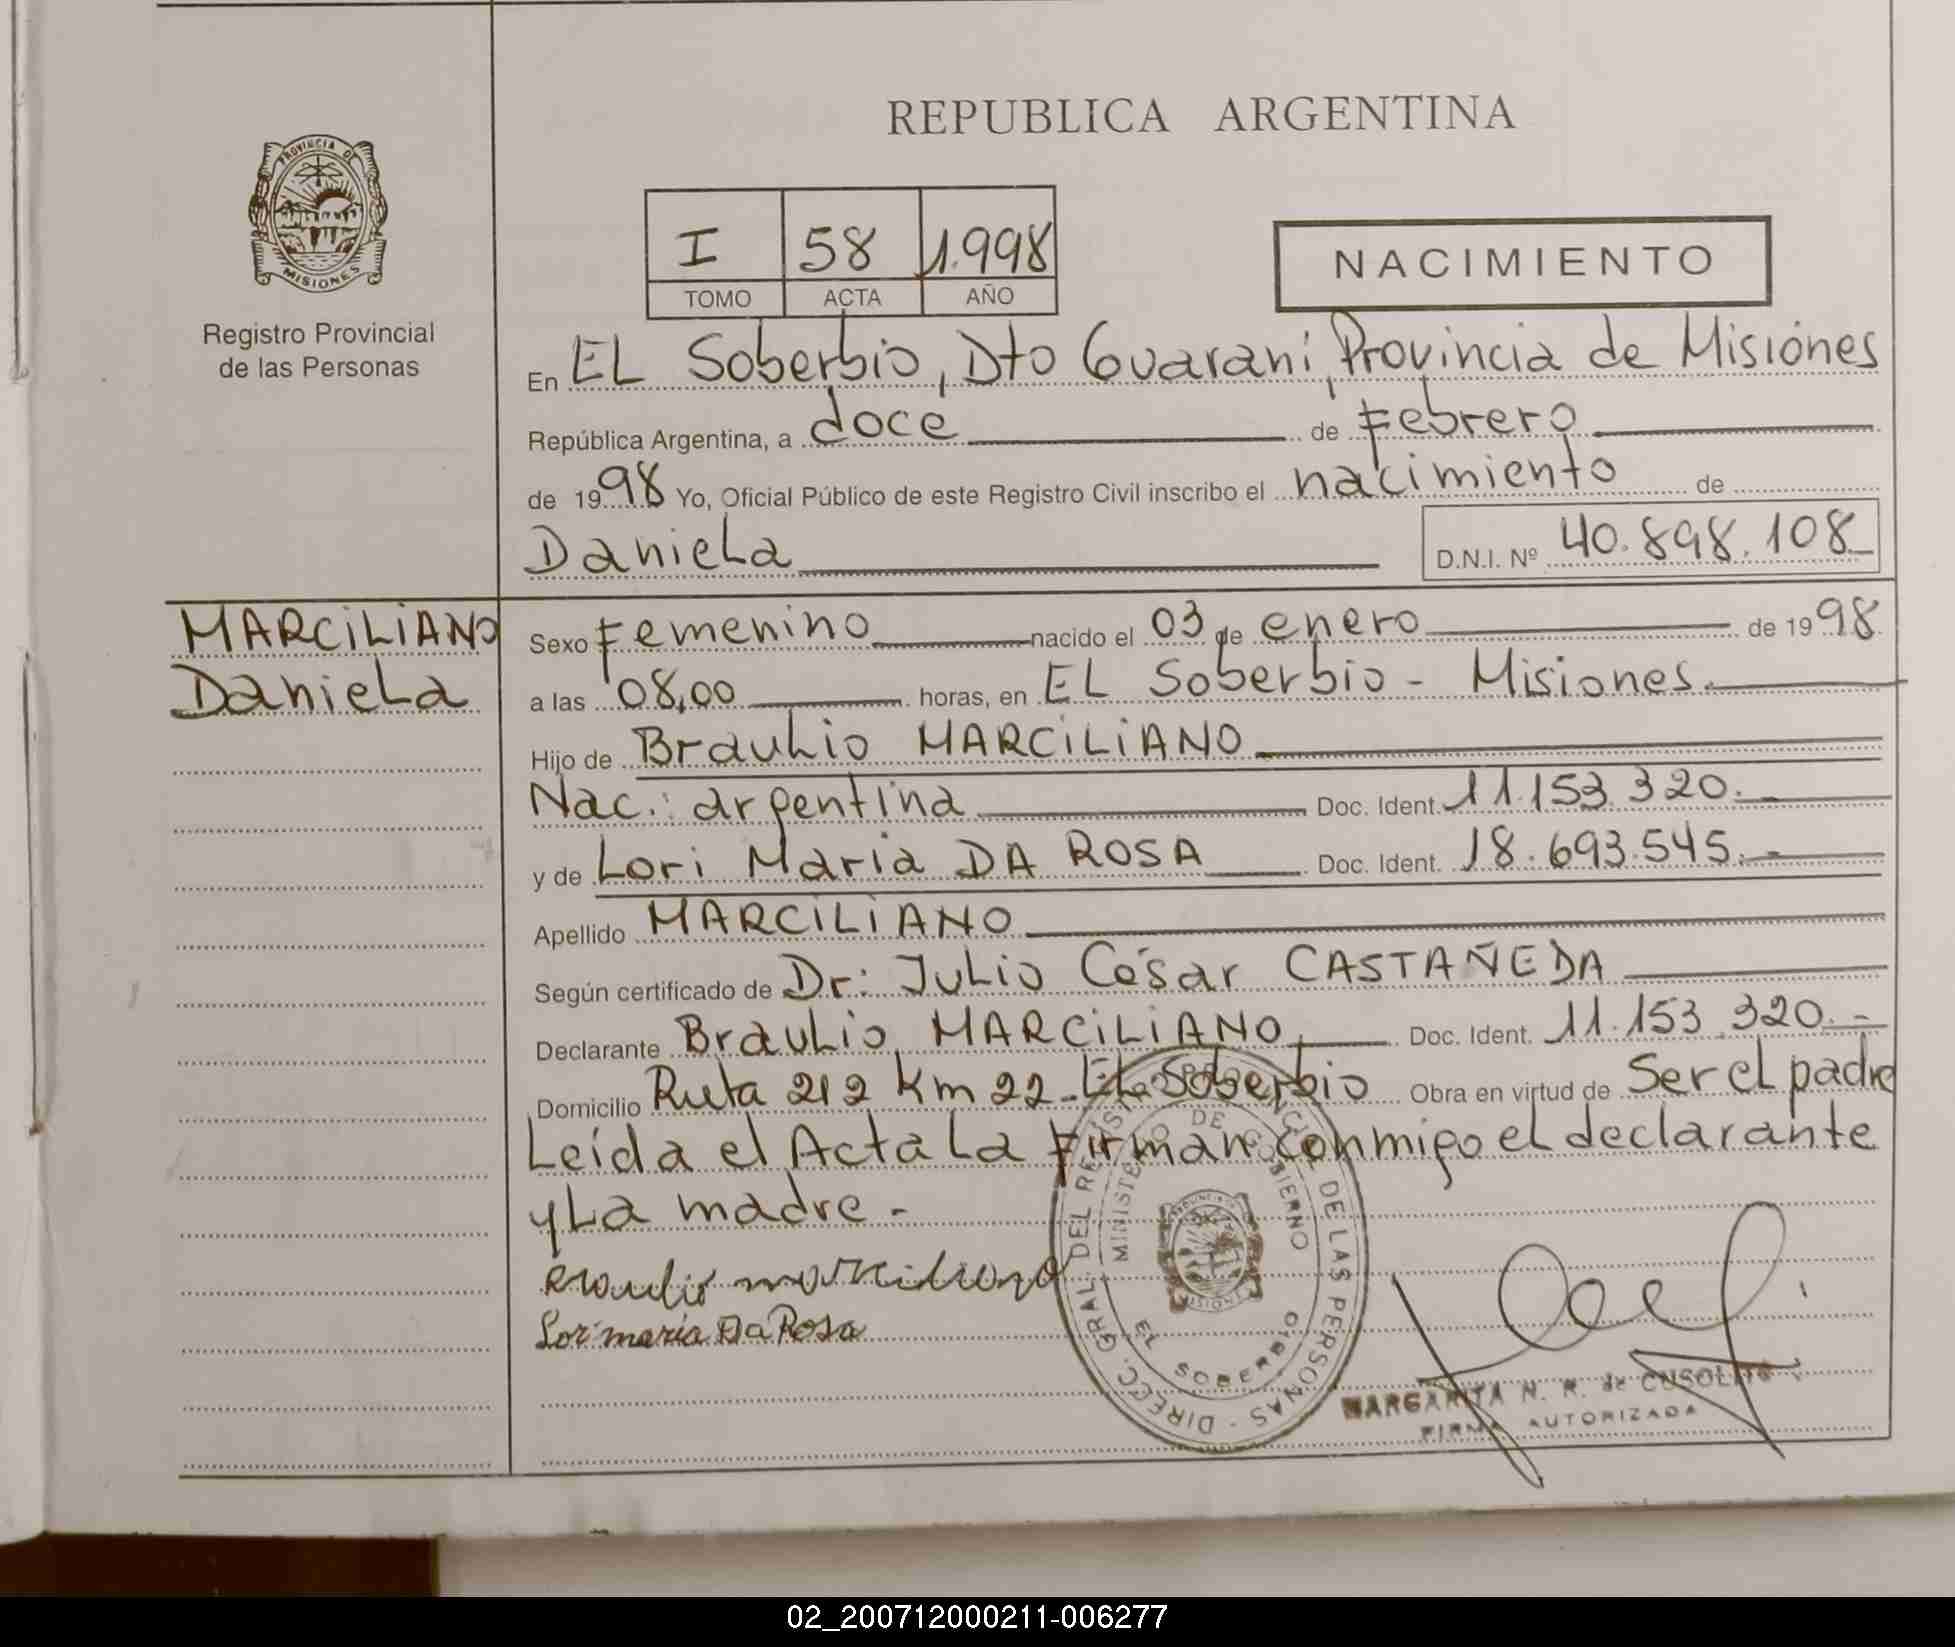 REPUBLICA ARGENTINA
PROVINCIA DE
MISIONES
Registro Provincial
de las Personas
I 58 1.998
TOMO ACTA AÑO
NACIMIENTO
En EL Soberbio, Dto Guaraní, Provincia de Misiónes
República Argentina, a doce de Febrero
de 1998 Yo, Oficial Público de este Registro Civil inscribo el nacimiento de
Daniela
D.N.I. Nº 40.898.108
MARCILIANO
Daniela
Sexo Femenino nacido el 03 de enero de 1998
a las 08,00 horas, en EL Soberbio - Misiones.
Hijo de Braulio MARCILIANO
Nac.: argentina Doc. Ident. 11.153.320.-
y de Lori Maria DA ROSA Doc. Ident. 18.693.545.-
Apellido MARCILIANO
Según certificado de Dr: Julio César CASTAÑEDA
Declarante Braulio MARCILIANO Doc. Ident. 11.153.320.-
Domicilio Ruta 212 Km 22 - EL Soberbio Obra en virtud de Ser el padre
Leída el Acta La Firman conmigo el declarante
y La madre.-
Braulio marciliano
Lori maria Da Rosa
DIREC. GRAL. DEL REG. DE LAS PERSONAS
MINISTERIO DE GOBIERNO
EL SOBERBIO
MARGARITA N. R. de CUSOLITO
FIRMA AUTORIZADA
02_200712000211-006277